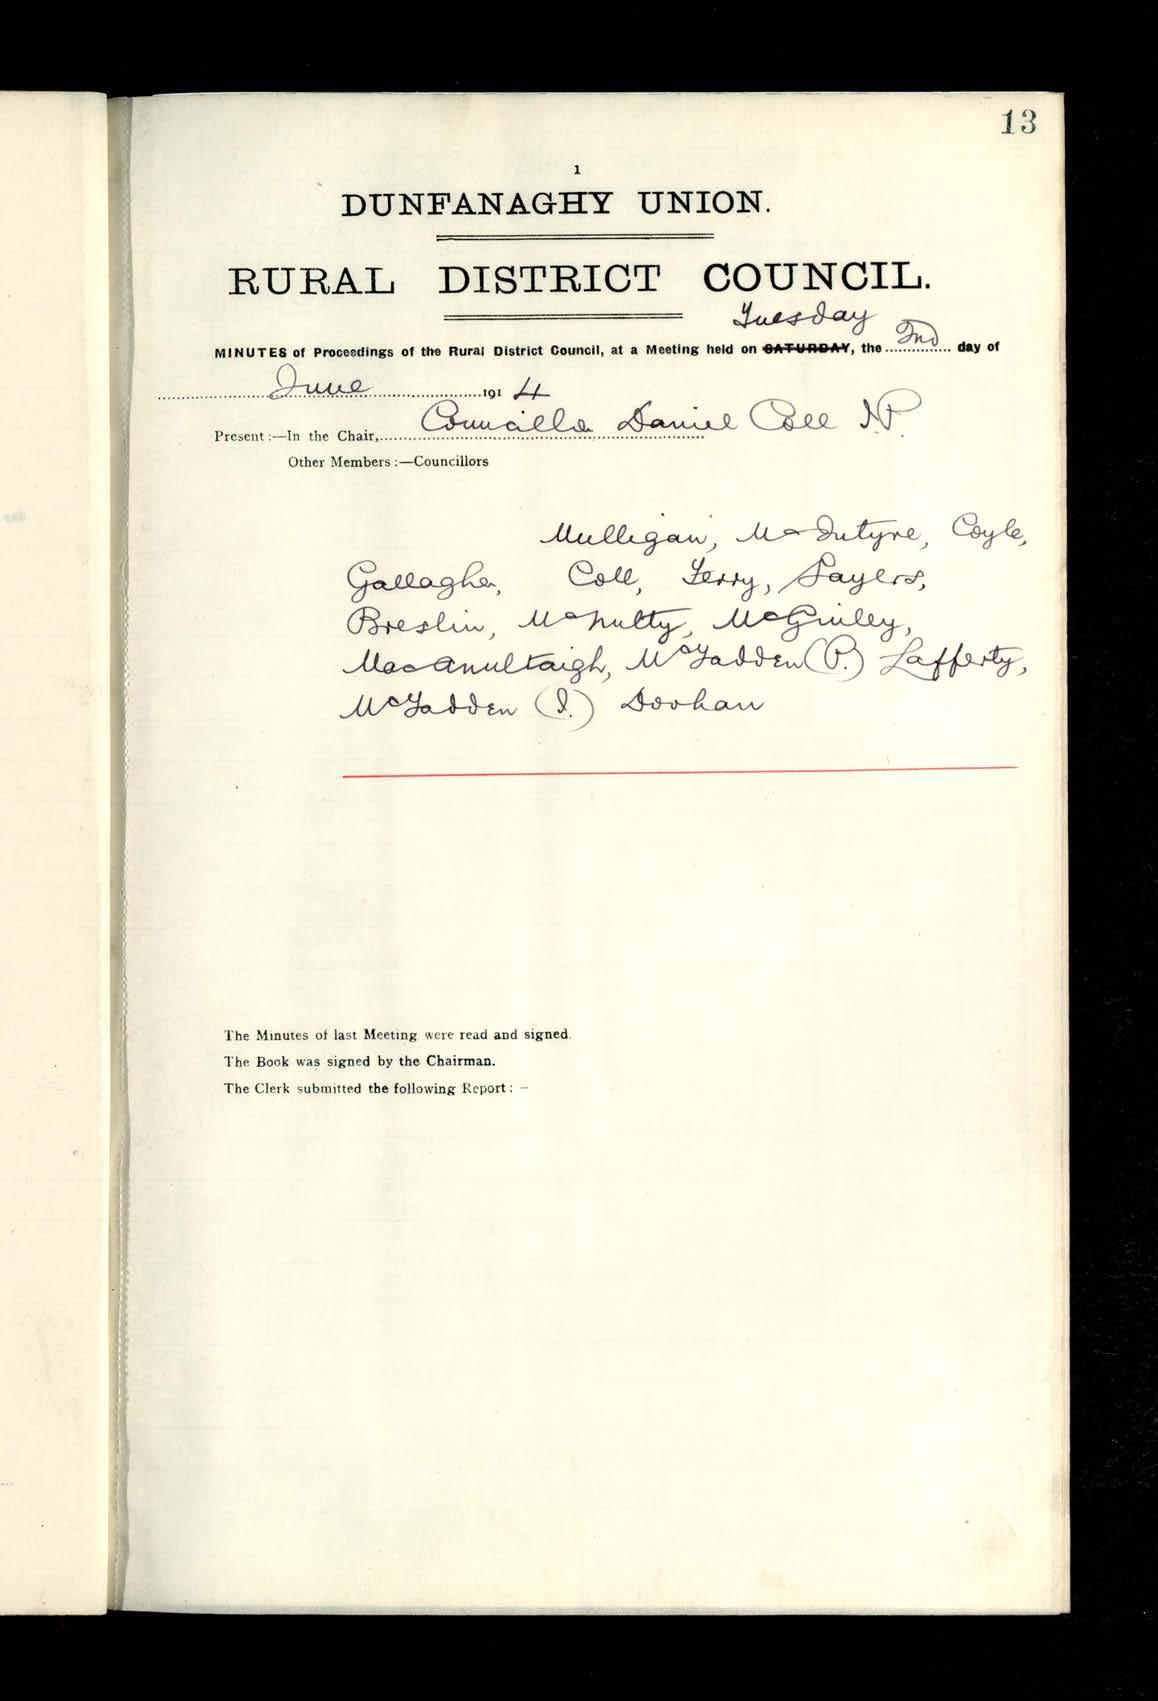 13
1
DUNFANAGHY UNION.
RURAL DISTRICT COUNCIL.
Tuesday
MINUTES of Proceedings of the Rural District Council, at a Meeting held on SATURDAY, the 2nd day of
June 1914
Present:—In the Chair, Councillor Daniel Coll J.P.
Other Members:—Councillors
Mulligan, McIntyre, Coyle,
Gallagher, Coll, Ferry, Sayers,
Breslin, McNulty, McGinley,
MacAnultaigh, McFadden (P.) Lafferty,
McFadden (I.) Doohan
The Minutes of last Meeting were read and signed.
The Book was signed by the Chairman.
The Clerk submitted the following Report: —